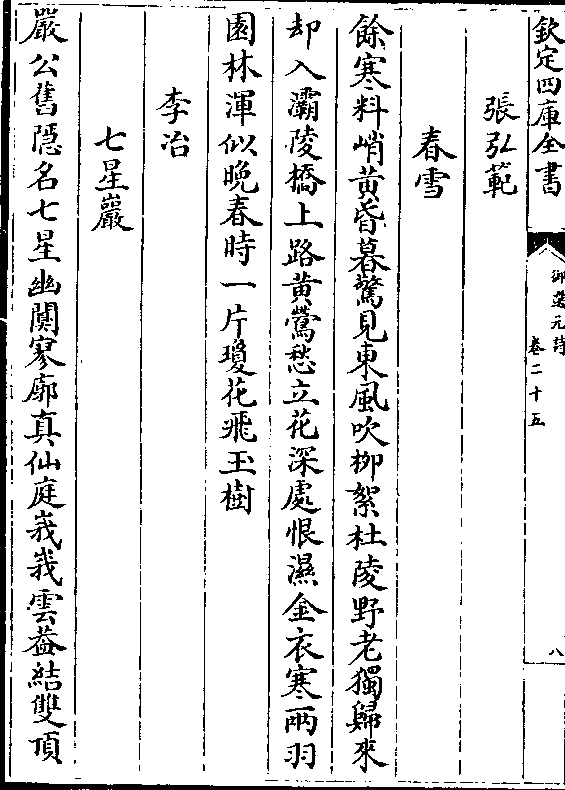 欽定四庫全書
御選元詩
卷二十五
八
張弘範
春雪
餘寒料峭黄昏暮驚見東風吹柳絮杜陵野老獨歸來
却入灞陵橋上路黄鶯愁立花深處恨濕金衣寒兩羽
園林渾似晩春時一片瓊花飛玉樹
李冶
七星巖
嚴公舊隠名七星幽闃寥廓真仙庭峩峩雲葢結雙頂